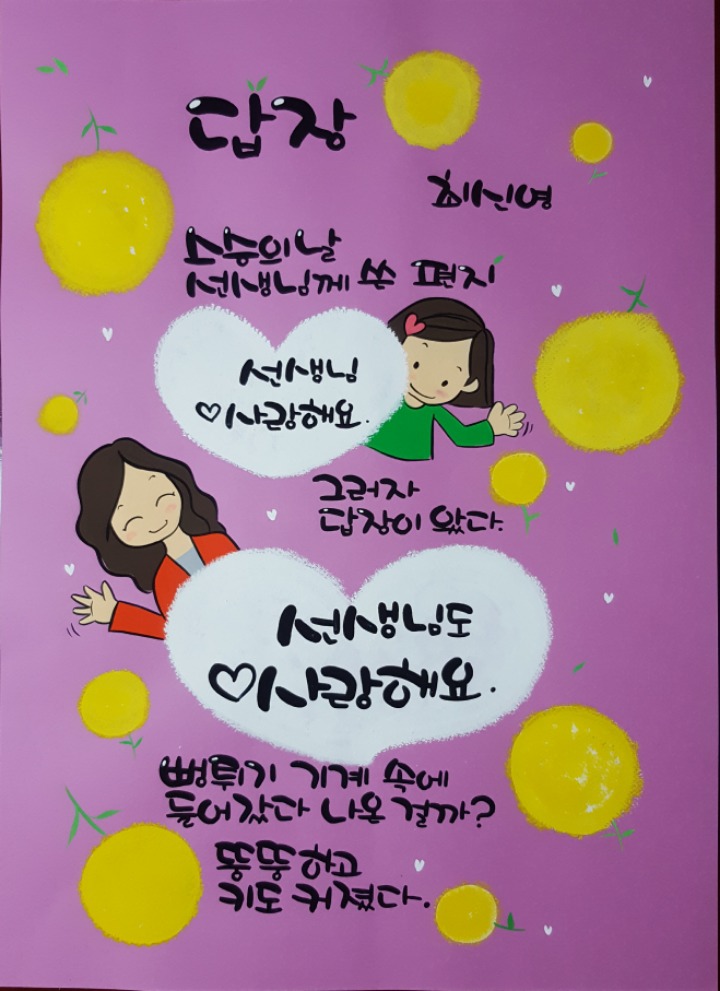 답장
최신영
스승의날
선생님께 쓴 편지
선생님
♡사랑해요.
그러자
답장이 왔다.
선생님도
♡사랑해요.
뻥튀기 기계 속에
들어갔다 나온 걸까?
뚱뚱하고
키도 커졌다.